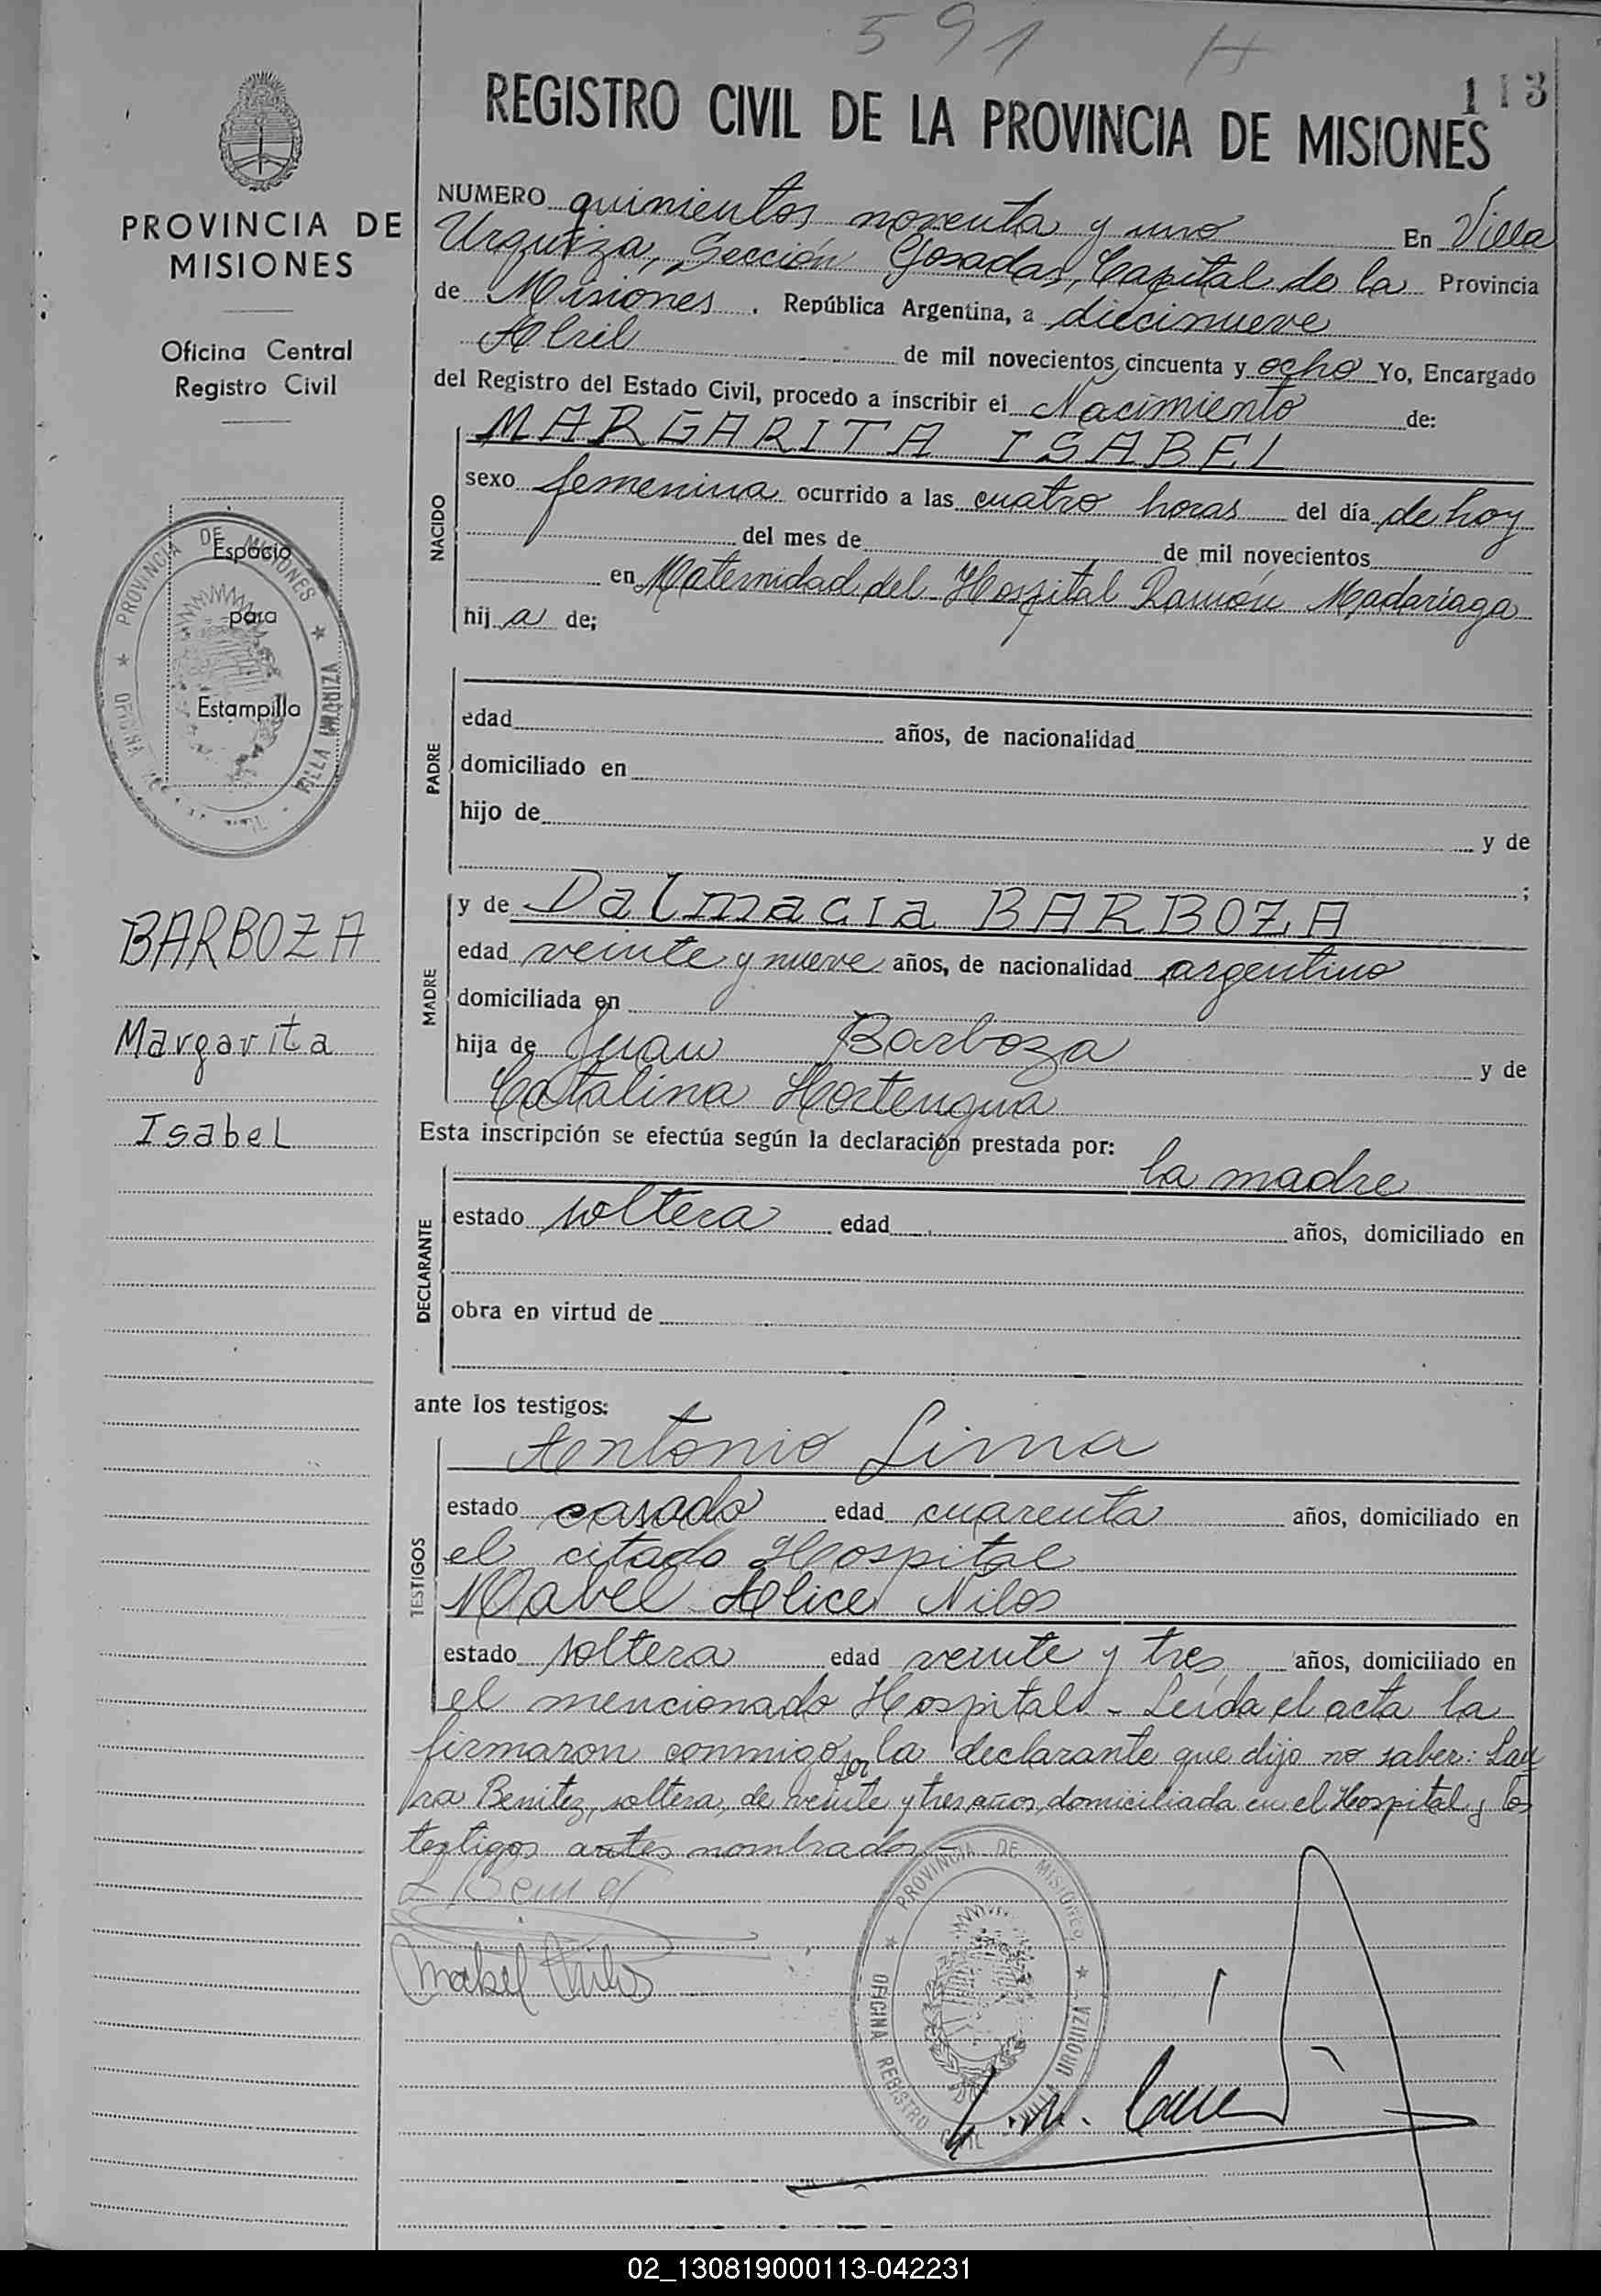 591 H
113
REGISTRO CIVIL DE LA PROVINCIA DE MISIONES
PROVINCIA DE
MISIONES
Oficina Central
Registro Civil
Espacio
para
Estampilla
PROVINCIA DE MISIONES
VILLA URQUIZA
BARBOZA
Margarita
Isabel
NUMERO quinientos noventa y uno En Villa
Urquiza, Sección Posadas, Capital de la Provincia
de Misiones. República Argentina, a diecinueve
Abril de mil novecientos cincuenta y ocho Yo, Encargado
del Registro del Estado Civil, procedo a inscribir el Nacimiento de:
MARGARITA ISABEL
NACIDO
sexo femenina ocurrido a las cuatro horas del día de hoy
del mes de de mil novecientos
en Maternidad del Hospital Ramón Madariaga
hij a de;
PADRE
edad años, de nacionalidad
domiciliado en
hijo de y de
;
MADRE
y de Dalmacia BARBOZA
edad veinte y nueve años, de nacionalidad argentino
domiciliada en
hija de Juan Barboza y de
Catalina
Esta inscripción se efectúa según la declaración prestada por:
la madre
DECLARANTE
estado soltera edad años, domiciliado en
obra en virtud de
ante los testigos:
Antonio Lima
TESTIGOS
estado casado edad cuarenta años, domiciliado en
el citado Hospital
Mabel Alice Nilos
estado soltera edad veinte y tres años, domiciliado en
el mencionado Hospital. - Leída el acta la
firmaron conmigo por la declarante que dijo no saber: Lau
ra Benitez, soltera, de veinte y tres años, domiciliada en el Hospital y los
testigos antes nombrados.-
Mabel Nilos
PROVINCIA DE MISIONES
OFICINA REGISTRO CIVIL
VILLA URQUIZA
02_130819000113-042231